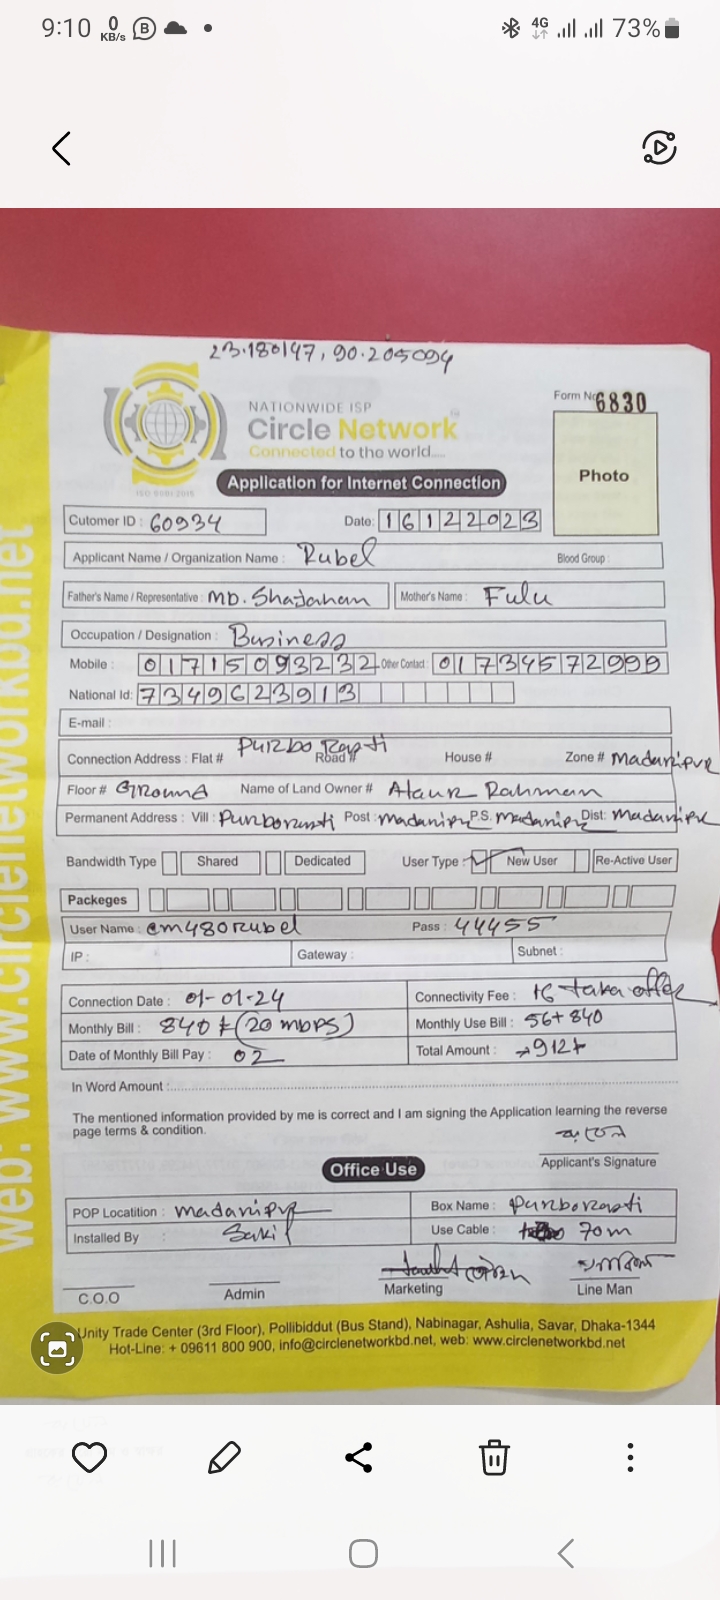 9:10 0 KB/s B 4G 73%
23.180147, 90.205094
NATIONWIDE ISP
Circle Network
Connected to the world...
ISO 9001:2015
Form No 6830
Photo
Application for Internet Connection
Cutomer ID : 60934 Date: 16122023
Applicant Name / Organization Name : Rubel Blood Group :
Father's Name / Representative : MD. Shajahan Mother's Name : Fulu
Occupation / Designation : Business
Mobile : 01715093232 Other Contact: 01734572999
National Id: 7349623913
E-mail :
Connection Address : Flat # Purbo Rasti Road # House # Zone # Madaripur
Floor # Ground Name of Land Owner # Ataur Rahman
Permanent Address : Vill : Purborasti Post : Madaripur P.S. Madaripur Dist: Madaripur
Bandwidth Type Shared Dedicated User Type : New User Re-Active User
Packeges
User Name : cm480rubel Pass : 44455
IP : Gateway : Subnet :
Connection Date : 01-01-24 Connectivity Fee : 16 taka offer
Monthly Bill : 840 (20 mbps) Monthly Use Bill : 56+840
Date of Monthly Bill Pay : 02 Total Amount : 912
In Word Amount :
The mentioned information provided by me is correct and I am signing the Application learning the reverse
page terms & condition.
Applicant's Signature
Office Use
POP Locatition : Madaripur Box Name : Purborasti
Installed By : Sakil Use Cable : 70m
C.O.O Admin Marketing Line Man
Unity Trade Center (3rd Floor), Pollibiddut (Bus Stand), Nabinagar, Ashulia, Savar, Dhaka-1344
Hot-Line: + 09611 800 900, info@circlenetworkbd.net, web: www.circlenetworkbd.net
web: www.circlenetworkbd.net